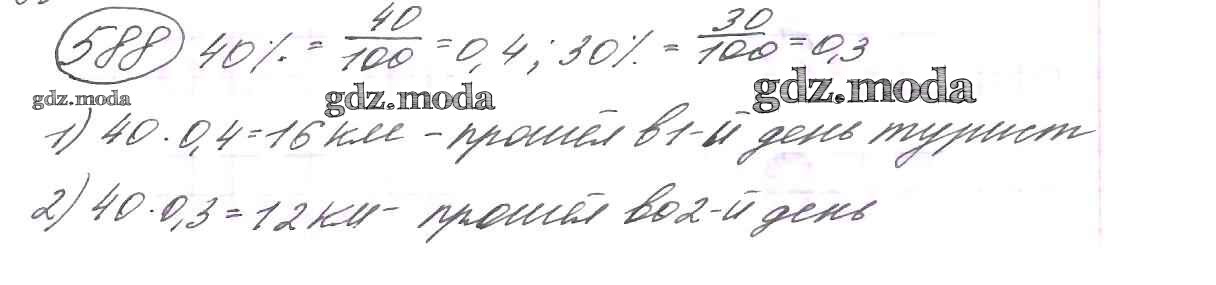 588 40% = 40/100 = 0,4; 30% = 30/100 = 0,3
gdz.moda gdz.moda gdz.moda
1) 40 · 0,4 = 16 км – прошёл в 1-й день турист
2) 40 · 0,3 = 12 км – прошёл во 2-й день